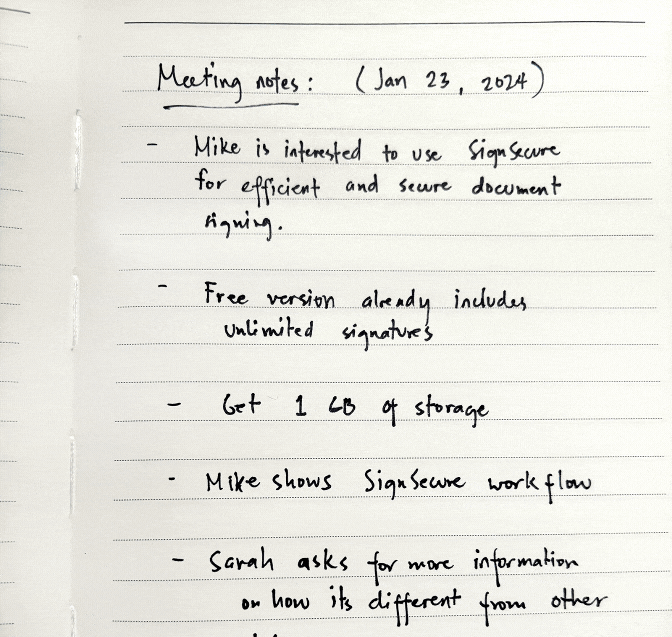 Meeting notes: (Jan 23, 2024)
- Mike is interested to use SignSecure
for efficient and secure document
signing.
- Free version already includes
unlimited signatures
- Get 1 GB of storage
- Mike shows SignSecure workflow
- Sarah asks for more information
on how its different from other